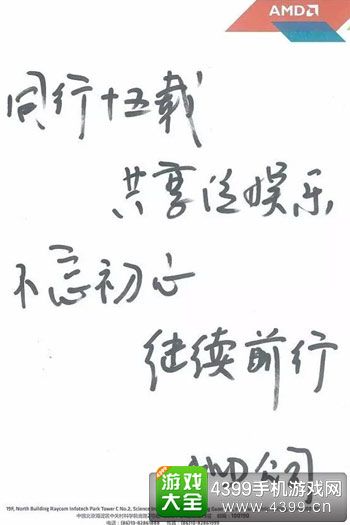 AMD
同行十五载
共享泛娱乐
不忘初心
继续前行
AMD公司
19F, North Building Raycom Infotech Park Tower C No.2, Science
中国北京海淀区中关村科学院南路2号
电话：(8610)-82861888 传真：(8610)-82861999
游戏大全
4399手机游戏网
4399.cn